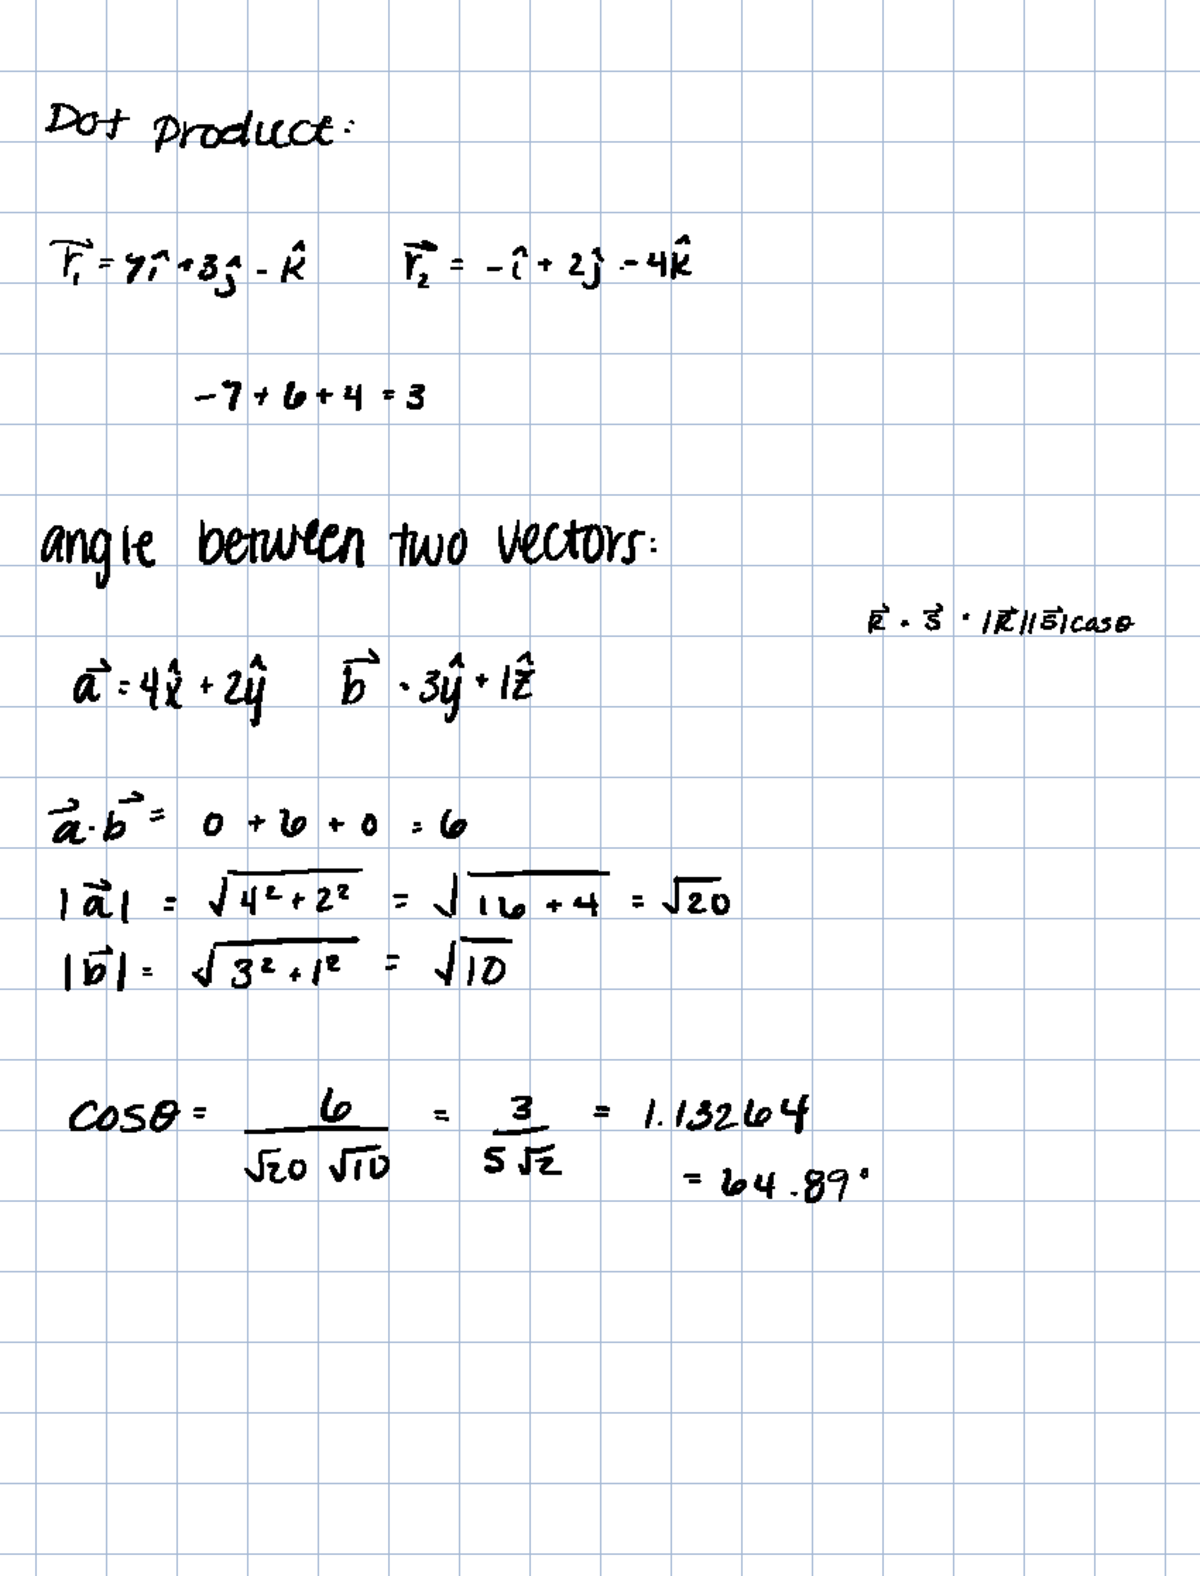 Dot product:
r⃗₁ = 7î + 3ĵ - k̂    r⃗₂ = -î + 2ĵ - 4k̂
-7 + 6 + 4 = 3
angle between two vectors:
R⃗ · S⃗ = |R⃗||S⃗|cosθ
a⃗ = 4x̂ + 2ŷ    b⃗ = 3ŷ + 1ẑ
a⃗·b⃗ = 0 + 6 + 0 = 6
|a⃗| = √(4² + 2²) = √(16 + 4) = √20
|b⃗| = √(3² + 1²) = √10
cosθ = 6/(√20 √10) = 3/(5√2) = 1.13264
= 64.89°